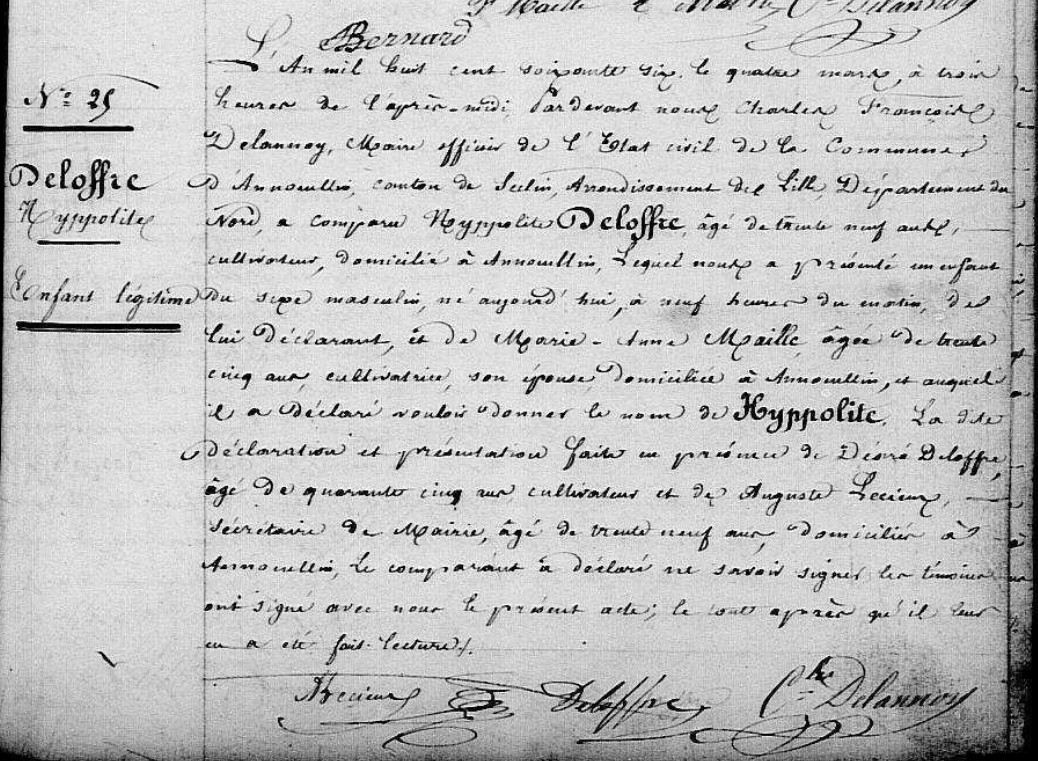 Delannoy
Bernard
L'An mil huit cent soixante six, le quatre mars, à trois
heures de l'après-midi, Pardevant nous Charles François
Delannoy, Maire officier de l'Etat civil de la Commune
d'Annoeullin, canton de Seclin, Arrondissement de Lille, Département du
Nord, a comparu Hyppolite Deloffre, âgé de trente neuf ans,
cultivateur, domicilié à Annoeullin, Lequel nous a présenté un enfant
du sexe masculin, né aujourd'hui, à neuf heures du matin, de
lui Déclarant, et de Marie-Anne Maille, âgée de trente
cinq ans, cultivatrice, son épouse domiciliée à Annoeullin, et auquel
il a Déclaré vouloir donner le nom de Hyppolite. La dite
déclaration et présentation faite en présence de Désiré Deloffre,
âgé de quarante cinq ans cultivateur et de Auguste Lecieux,
Secrétaire de Mairie, âgé de trente neuf ans, domiciliés à
Annoeullin, Le comparant a déclaré ne savoir signer les témoins
ont signé avec nous le présent acte; le tout après qu'il leur
en a été fait lecture/.
ALecieux Deloffre Ch. Delannoy
N° 25
Deloffre
Hyppolite
Enfant légitime